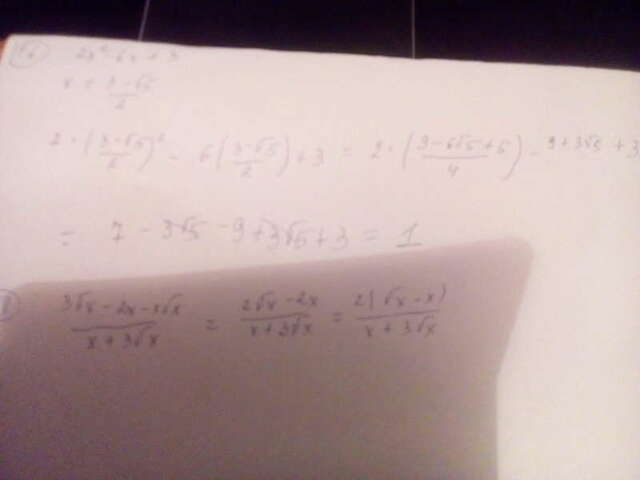 2x² - 6x + 3
x = (3 - √5)/2
2 · ((3 - √5)/2)² - 6((3 - √5)/2) + 3 = 2 · ((9 - 6√5 + 5)/4) - 9 + 3√5 + 3
= 7 - 3√5 - 9 + 3√5 + 3 = 1
(3√x - 2x - x√x)/(x + 3√x) = (2√x - 2x)/(x + 3√x) = 2(√x - x)/(x + 3√x)